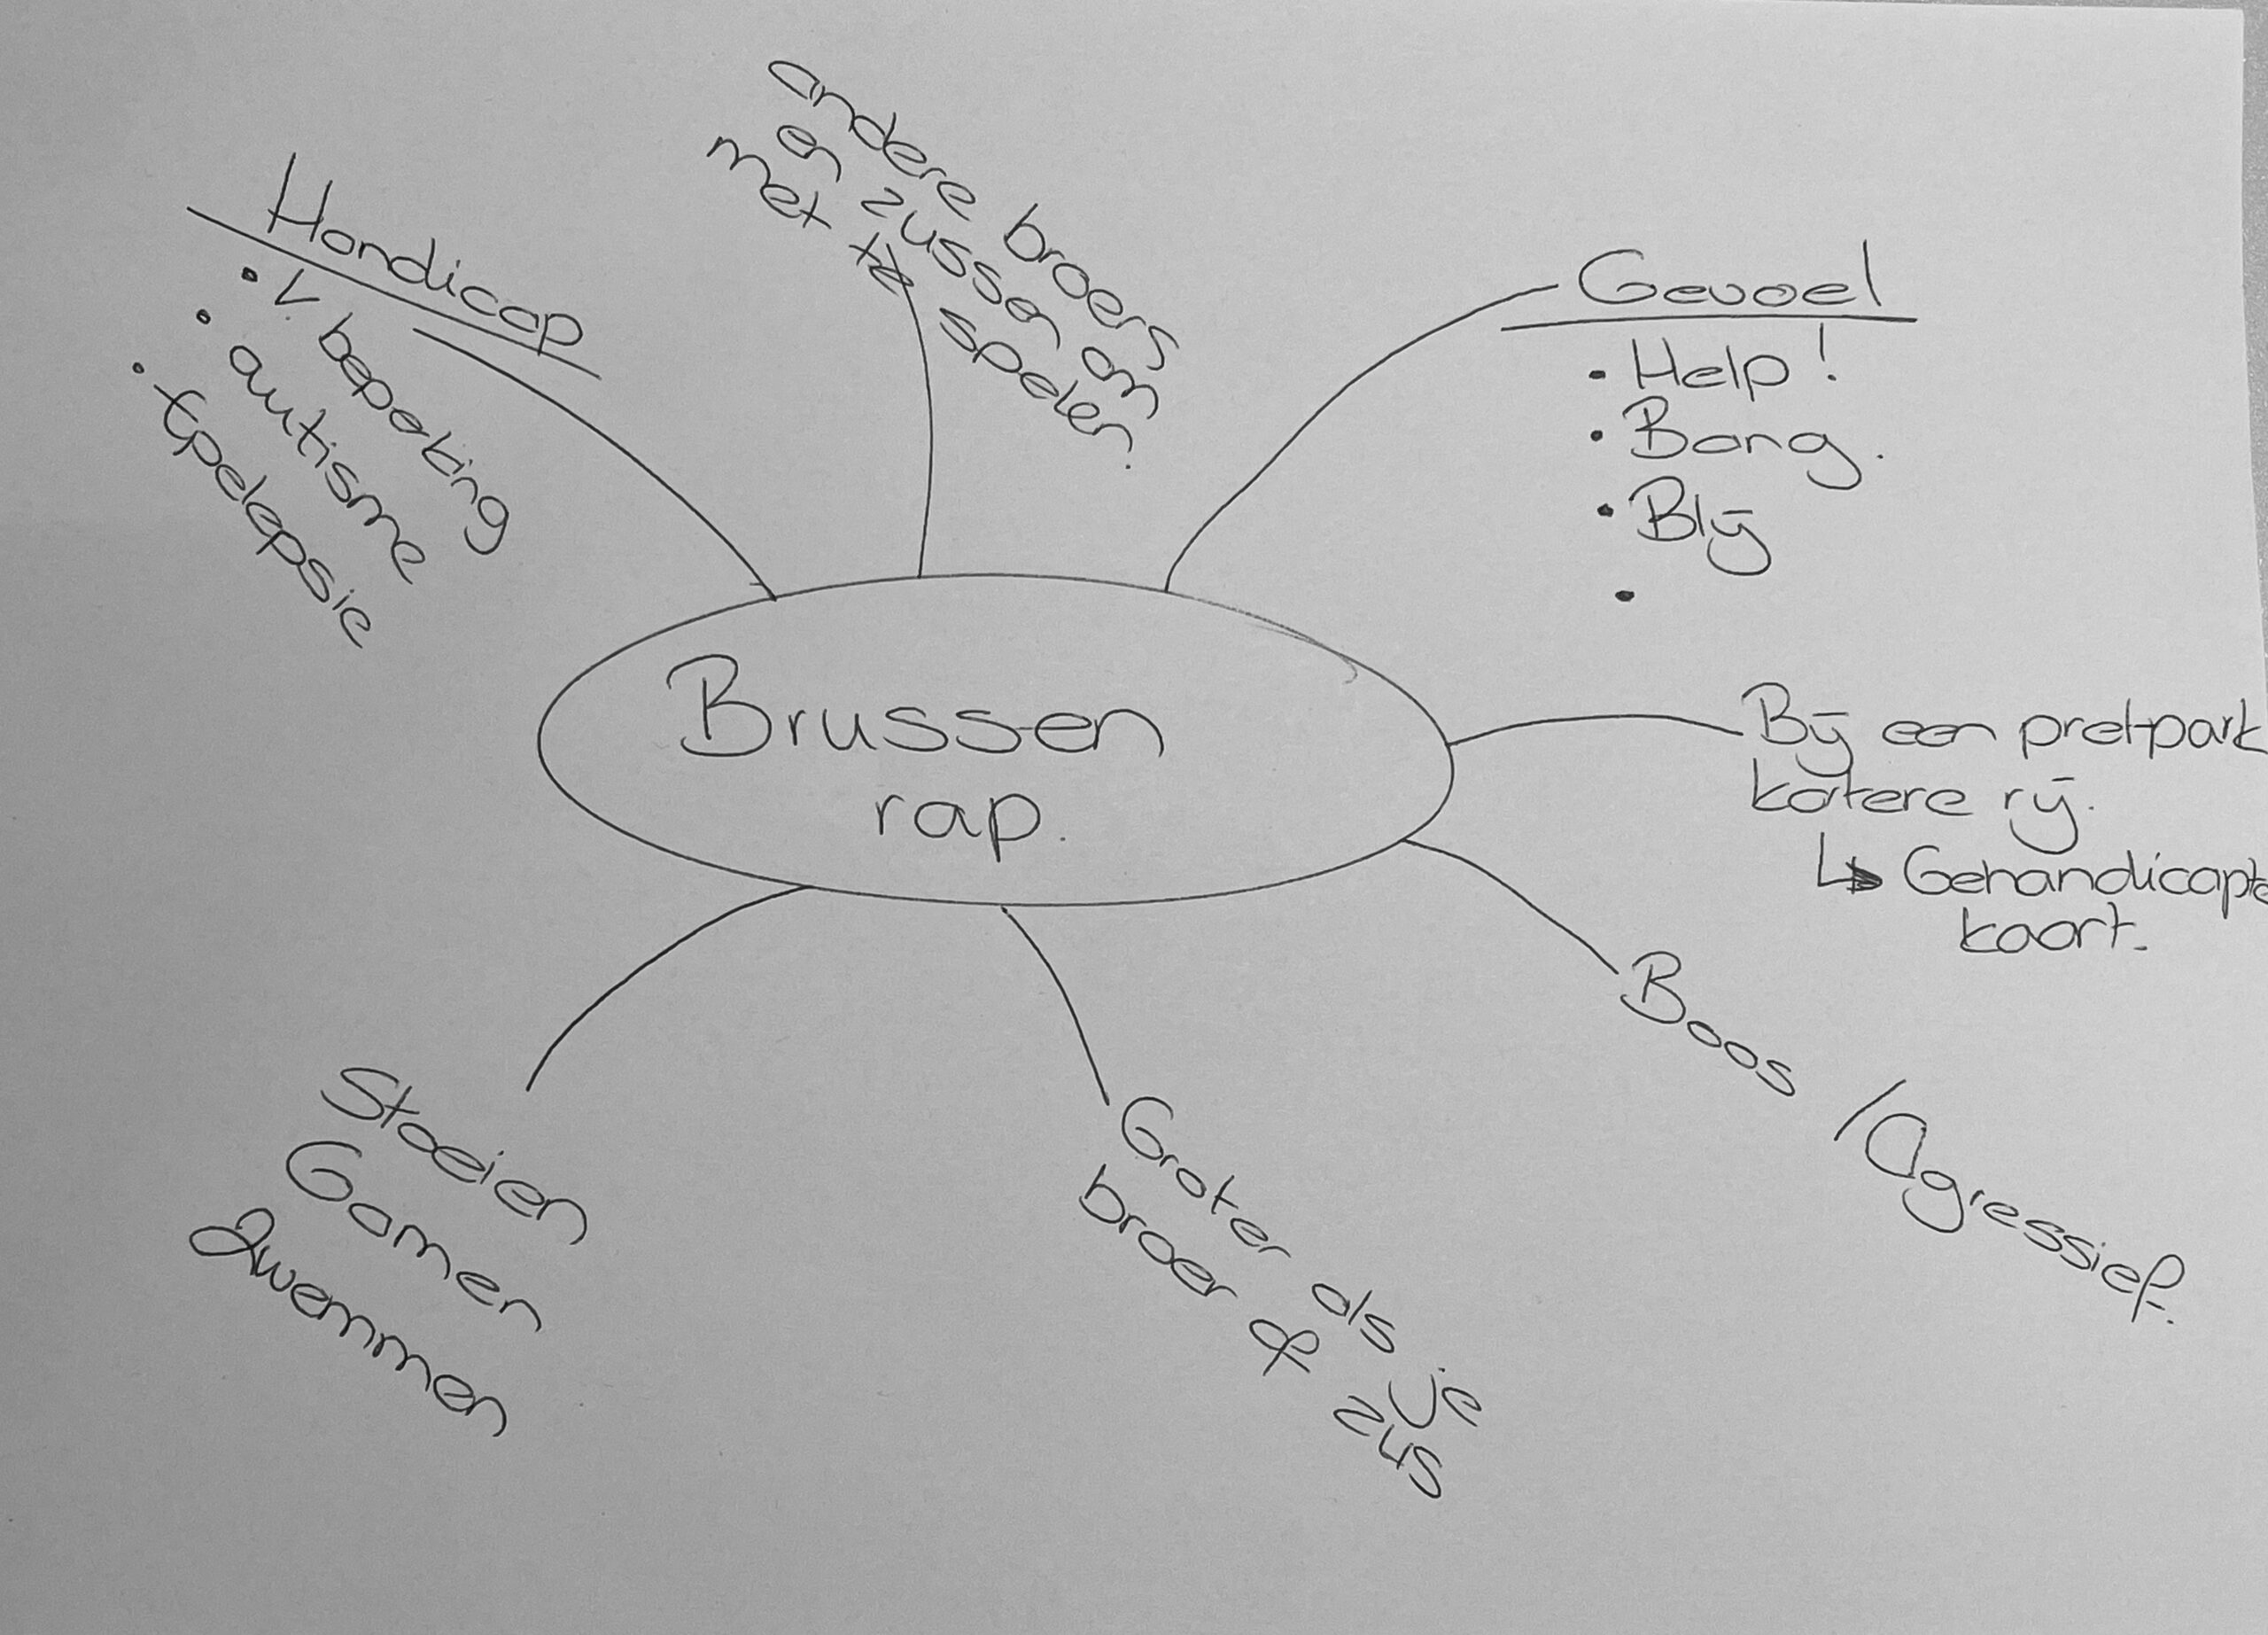 Handicap
• V. beperking
• autisme
• Epelepsie
andere broers
en zussen om
met te spelen.
Gevoel
• Help!
• Bang.
• Blij
•
Brussen
rap.
Bij een pretpark
kortere rij.
↳ Gehandicapte
kaart.
Boos / Agressief.
Groter als je
broer of zus
Stoeien
Gamen
Zwemmen